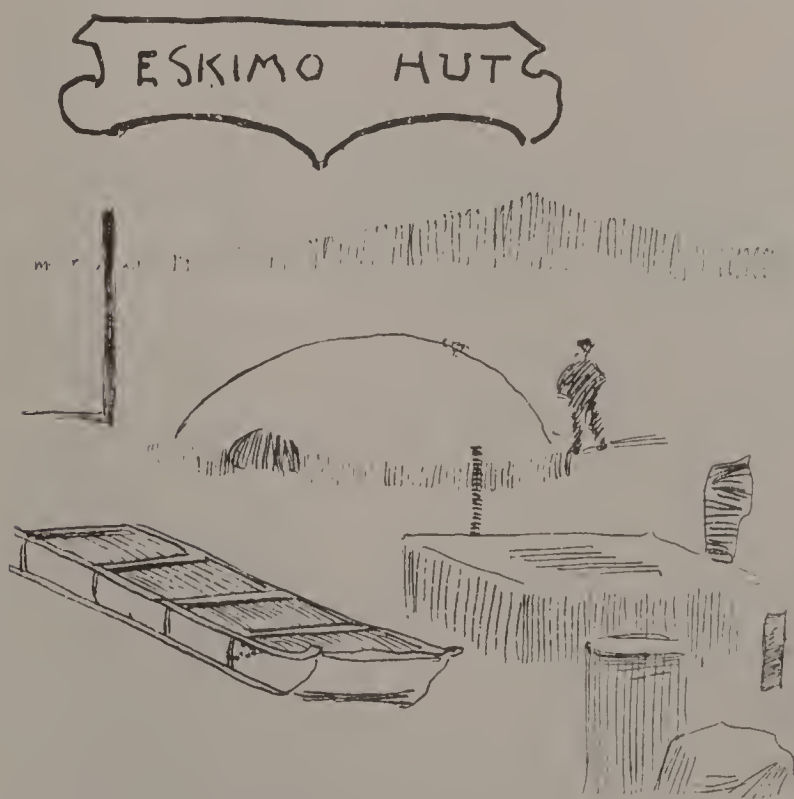 ESKIMO HUT